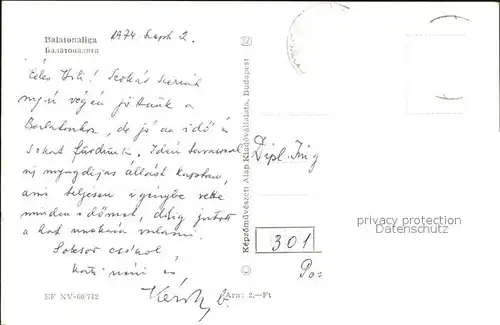 Balatonaliga
Балатоналига
1974 Szept 2.
Édes Itti! Szokás szerint
nyár végén jöttünk a
Balatonhoz, de jó az idő és
sokat fürdünk. Idén tavasszal
új nyugdíjas állást kaptam,
ami teljesen igénybe vette
minden időmet, alig jutott
a két unokára valami.
Sokszor csókol,
Kati néni és
Képzőművészeti Alap Kiadóvállalata, Budapest
Dipl. Ing
privacy protection
AnsichtskartenCenter
301
Po:
EF XV-60 742
Ára: 2,-Ft